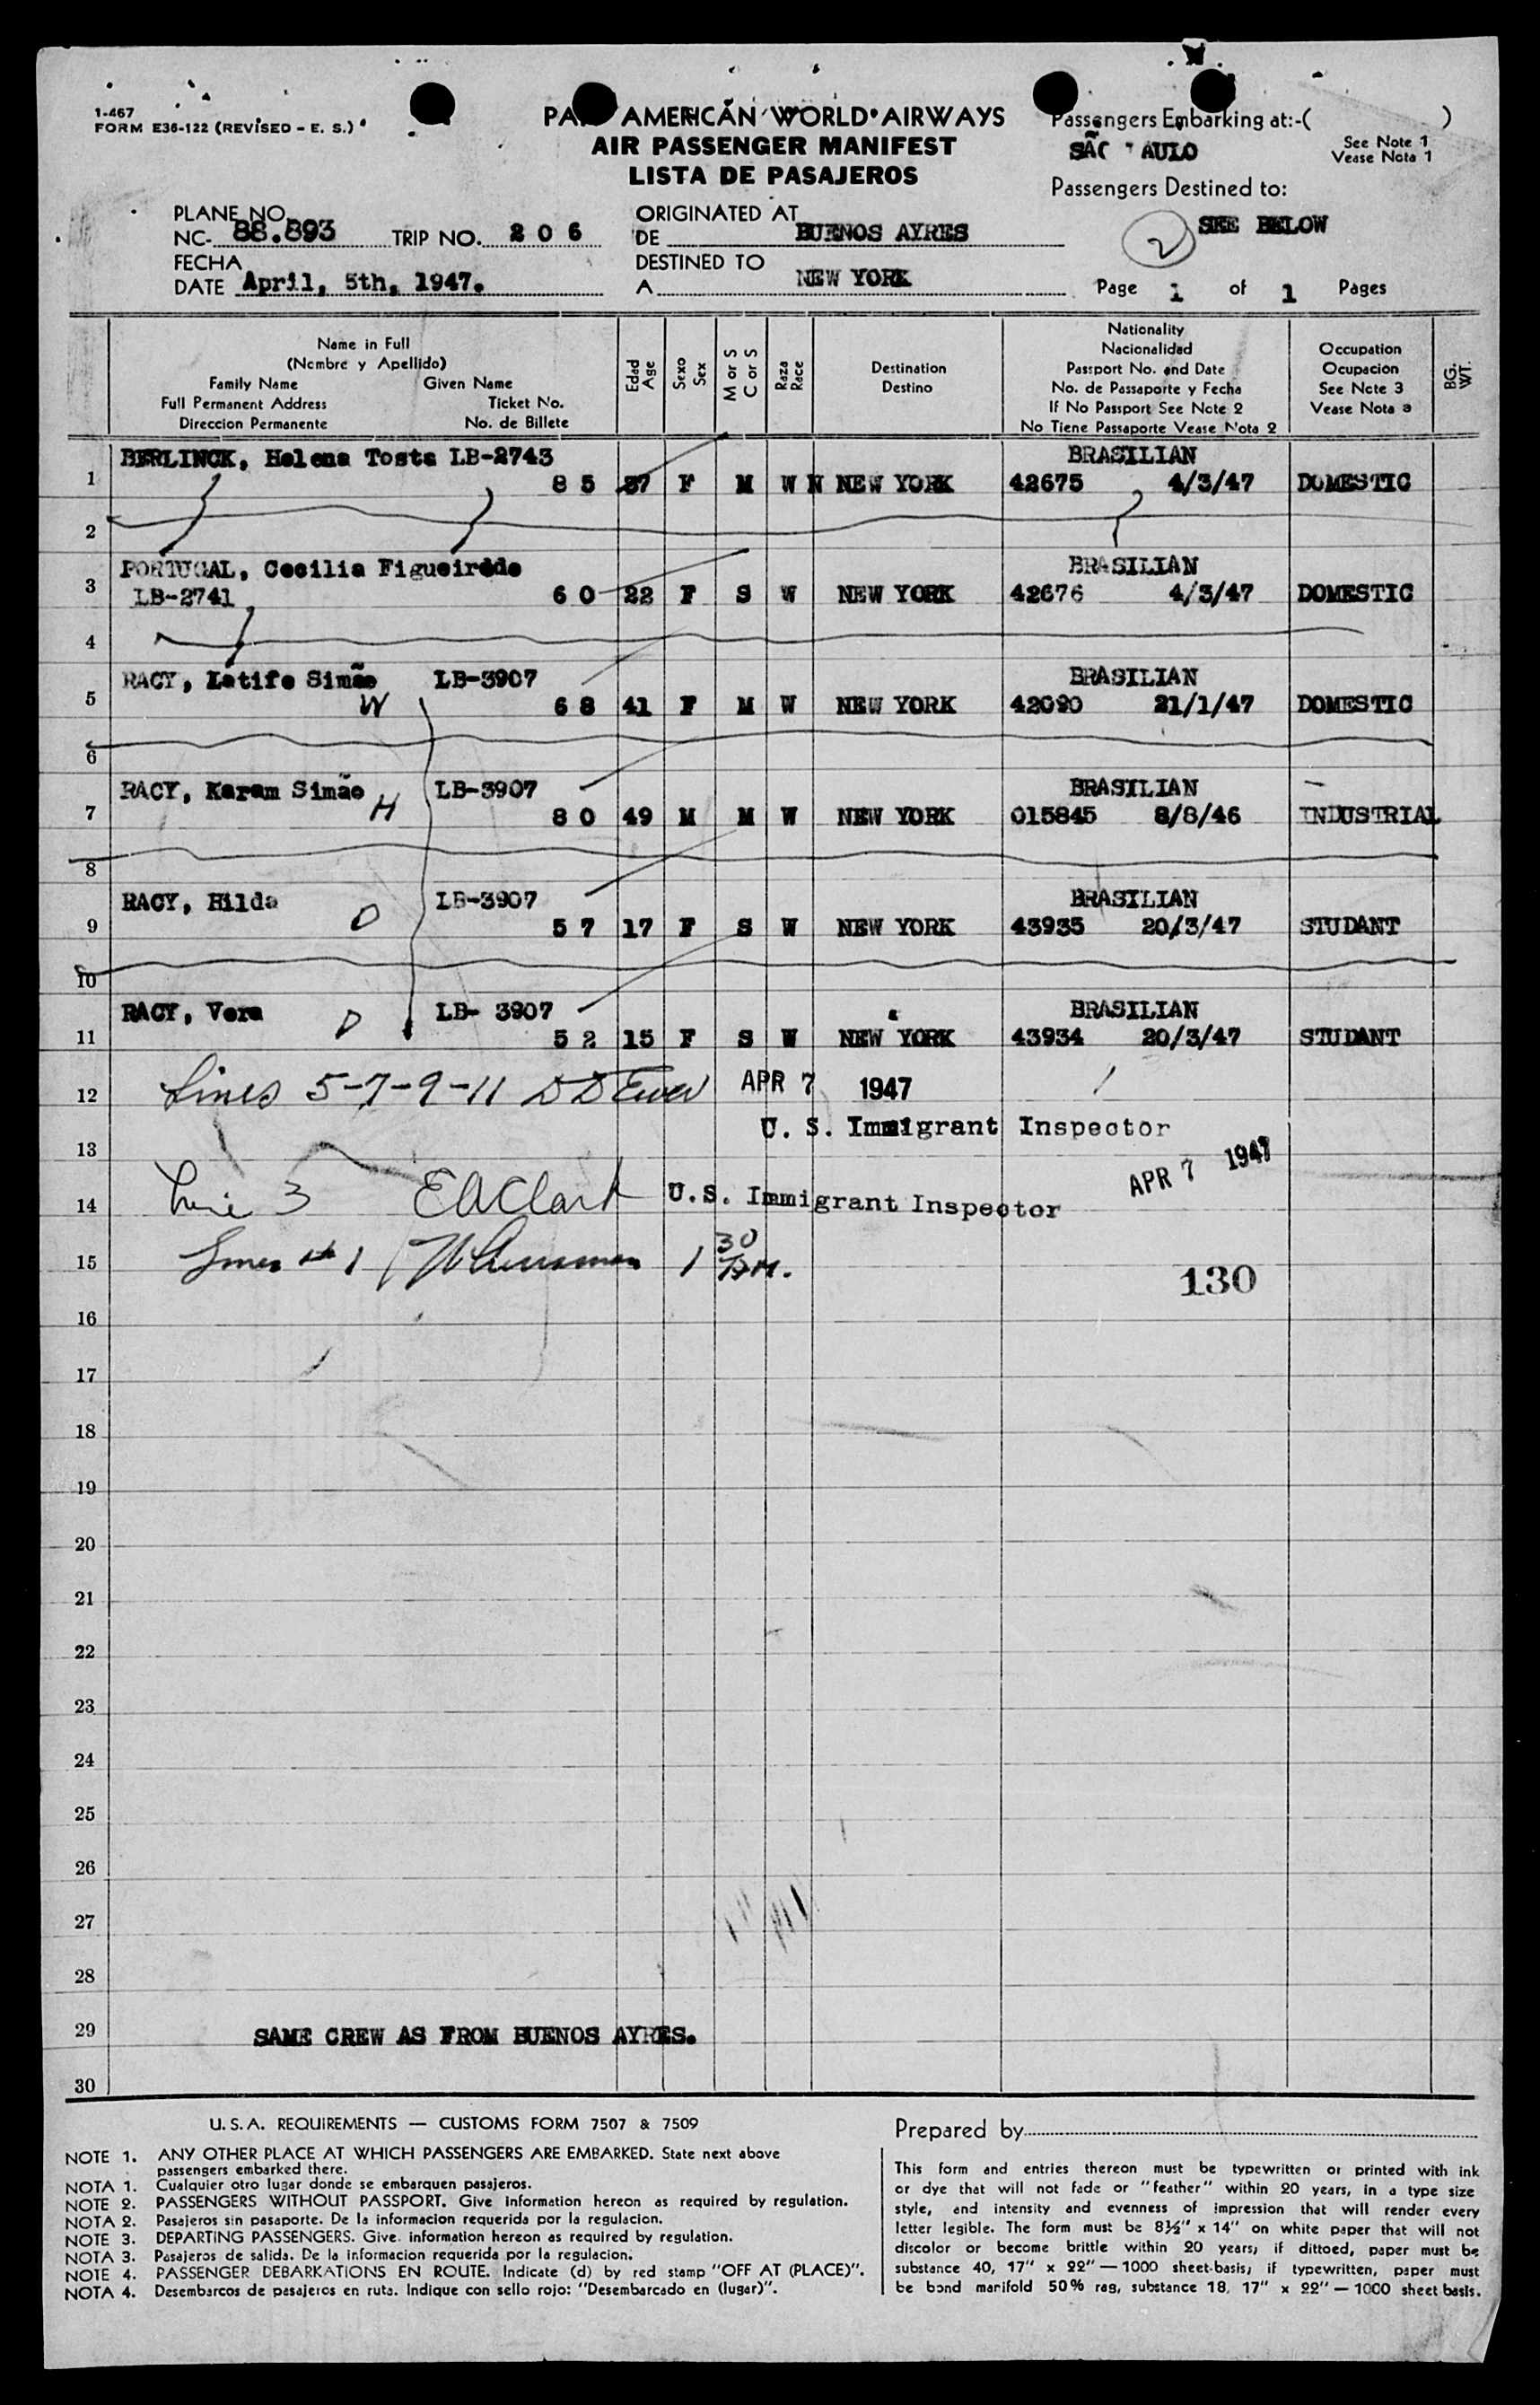 1-467
FORM E36-122 (REVISED - E. S.)
PA AMERICAN WORLD AIRWAYS
AIR PASSENGER MANIFEST
LISTA DE PASAJEROS
Passengers Embarking at:-( )
SÃO AULO
See Note 1
Vease Nota 1
Passengers Destined to:
2 SEE BELOW
PLANE NO.
NC- 88.893 TRIP NO. 206
FECHA
DATE April, 5th, 1947.
ORIGINATED AT
DE BUENOS AYRES
DESTINED TO
A NEW YORK
Page 1 of 1 Pages
Name in Full
(Nombre y Apellido)
Family Name Given Name
Full Permanent Address Ticket No.
Direccion Permanente No. de Billete
Edad Age
Sexo Sex
M or S C or S
Raza Race
Destination
Destino
Nationality
Nacionalidad
Passport No. and Date
No. de Passaporte y Fecha
If No Passport See Note 2
No Tiene Passaporte Vease Nota 2
Occupation
Ocupacion
See Note 3
Vease Nota 3
BG. WT.
BERLINCK, Helena Tosta LB-2743 BRASILIAN
1 85 37 F M W N NEW YORK 42675 4/3/47 DOMESTIC
2
PORTUGAL, Cecilia Figueirêdo BRASILIAN
3 LB-2741 60 22 F S W NEW YORK 42676 4/3/47 DOMESTIC
4
RACY, Latife Simão LB-3907 BRASILIAN
5 W 68 41 F M W NEW YORK 42090 21/1/47 DOMESTIC
6
RACY, Karam Simão LB-3907 BRASILIAN
7 H 80 49 M M W NEW YORK 015845 8/8/46 INDUSTRIAL
8
RACY, Hilda LB-3907 BRASILIAN
9 D 57 17 F S W NEW YORK 43935 20/3/47 STUDANT
10
RACY, Vera LB- 3907 BRASILIAN
11 D 52 15 F S W NEW YORK 43934 20/3/47 STUDANT
12 Lines 5-7-9-11 APR 7 1947
U. S. Immigrant Inspector
13
APR 7 1947
14 Line 3 EAClark U.S. Immigrant Inspector
15 Lines # 1 1 30 PM.
130
16
17
18
19
20
21
22
23
24
25
26
27
28
29 SAME CREW AS FROM BUENOS AYRES.
30
U. S. A. REQUIREMENTS — CUSTOMS FORM 7507 & 7509
NOTE 1. ANY OTHER PLACE AT WHICH PASSENGERS ARE EMBARKED. State next above
passengers embarked there.
NOTA 1. Cualquier otro lugar donde se embarquen pasajeros.
NOTE 2. PASSENGERS WITHOUT PASSPORT. Give information hereon as required by regulation.
NOTA 2. Pasajeros sin pasaporte. De la informacion requerida por la regulacion.
NOTE 3. DEPARTING PASSENGERS. Give information hereon as required by regulation.
NOTA 3. Pasajeros de salida. De la informacion requerida por la regulacion.
NOTE 4. PASSENGER DEBARKATIONS EN ROUTE. Indicate (d) by red stamp "OFF AT (PLACE)".
NOTA 4. Desembarcos de pasajeros en ruta. Indique con sello rojo: "Desembarcado en (lugar)".
Prepared by
This form and entries thereon must be typewritten or printed with ink
or dye that will not fade or "feather" within 20 years, in a type size
style, and intensity and evenness of impression that will render every
letter legible. The form must be 8½" x 14" on white paper that will not
discolor or become brittle within 20 years; if dittoed, paper must be
substance 40, 17" x 22" — 1000 sheet-basis; if typewritten, paper must
be bond manifold 50% rag, substance 18, 17" x 22" — 1000 sheet basis.